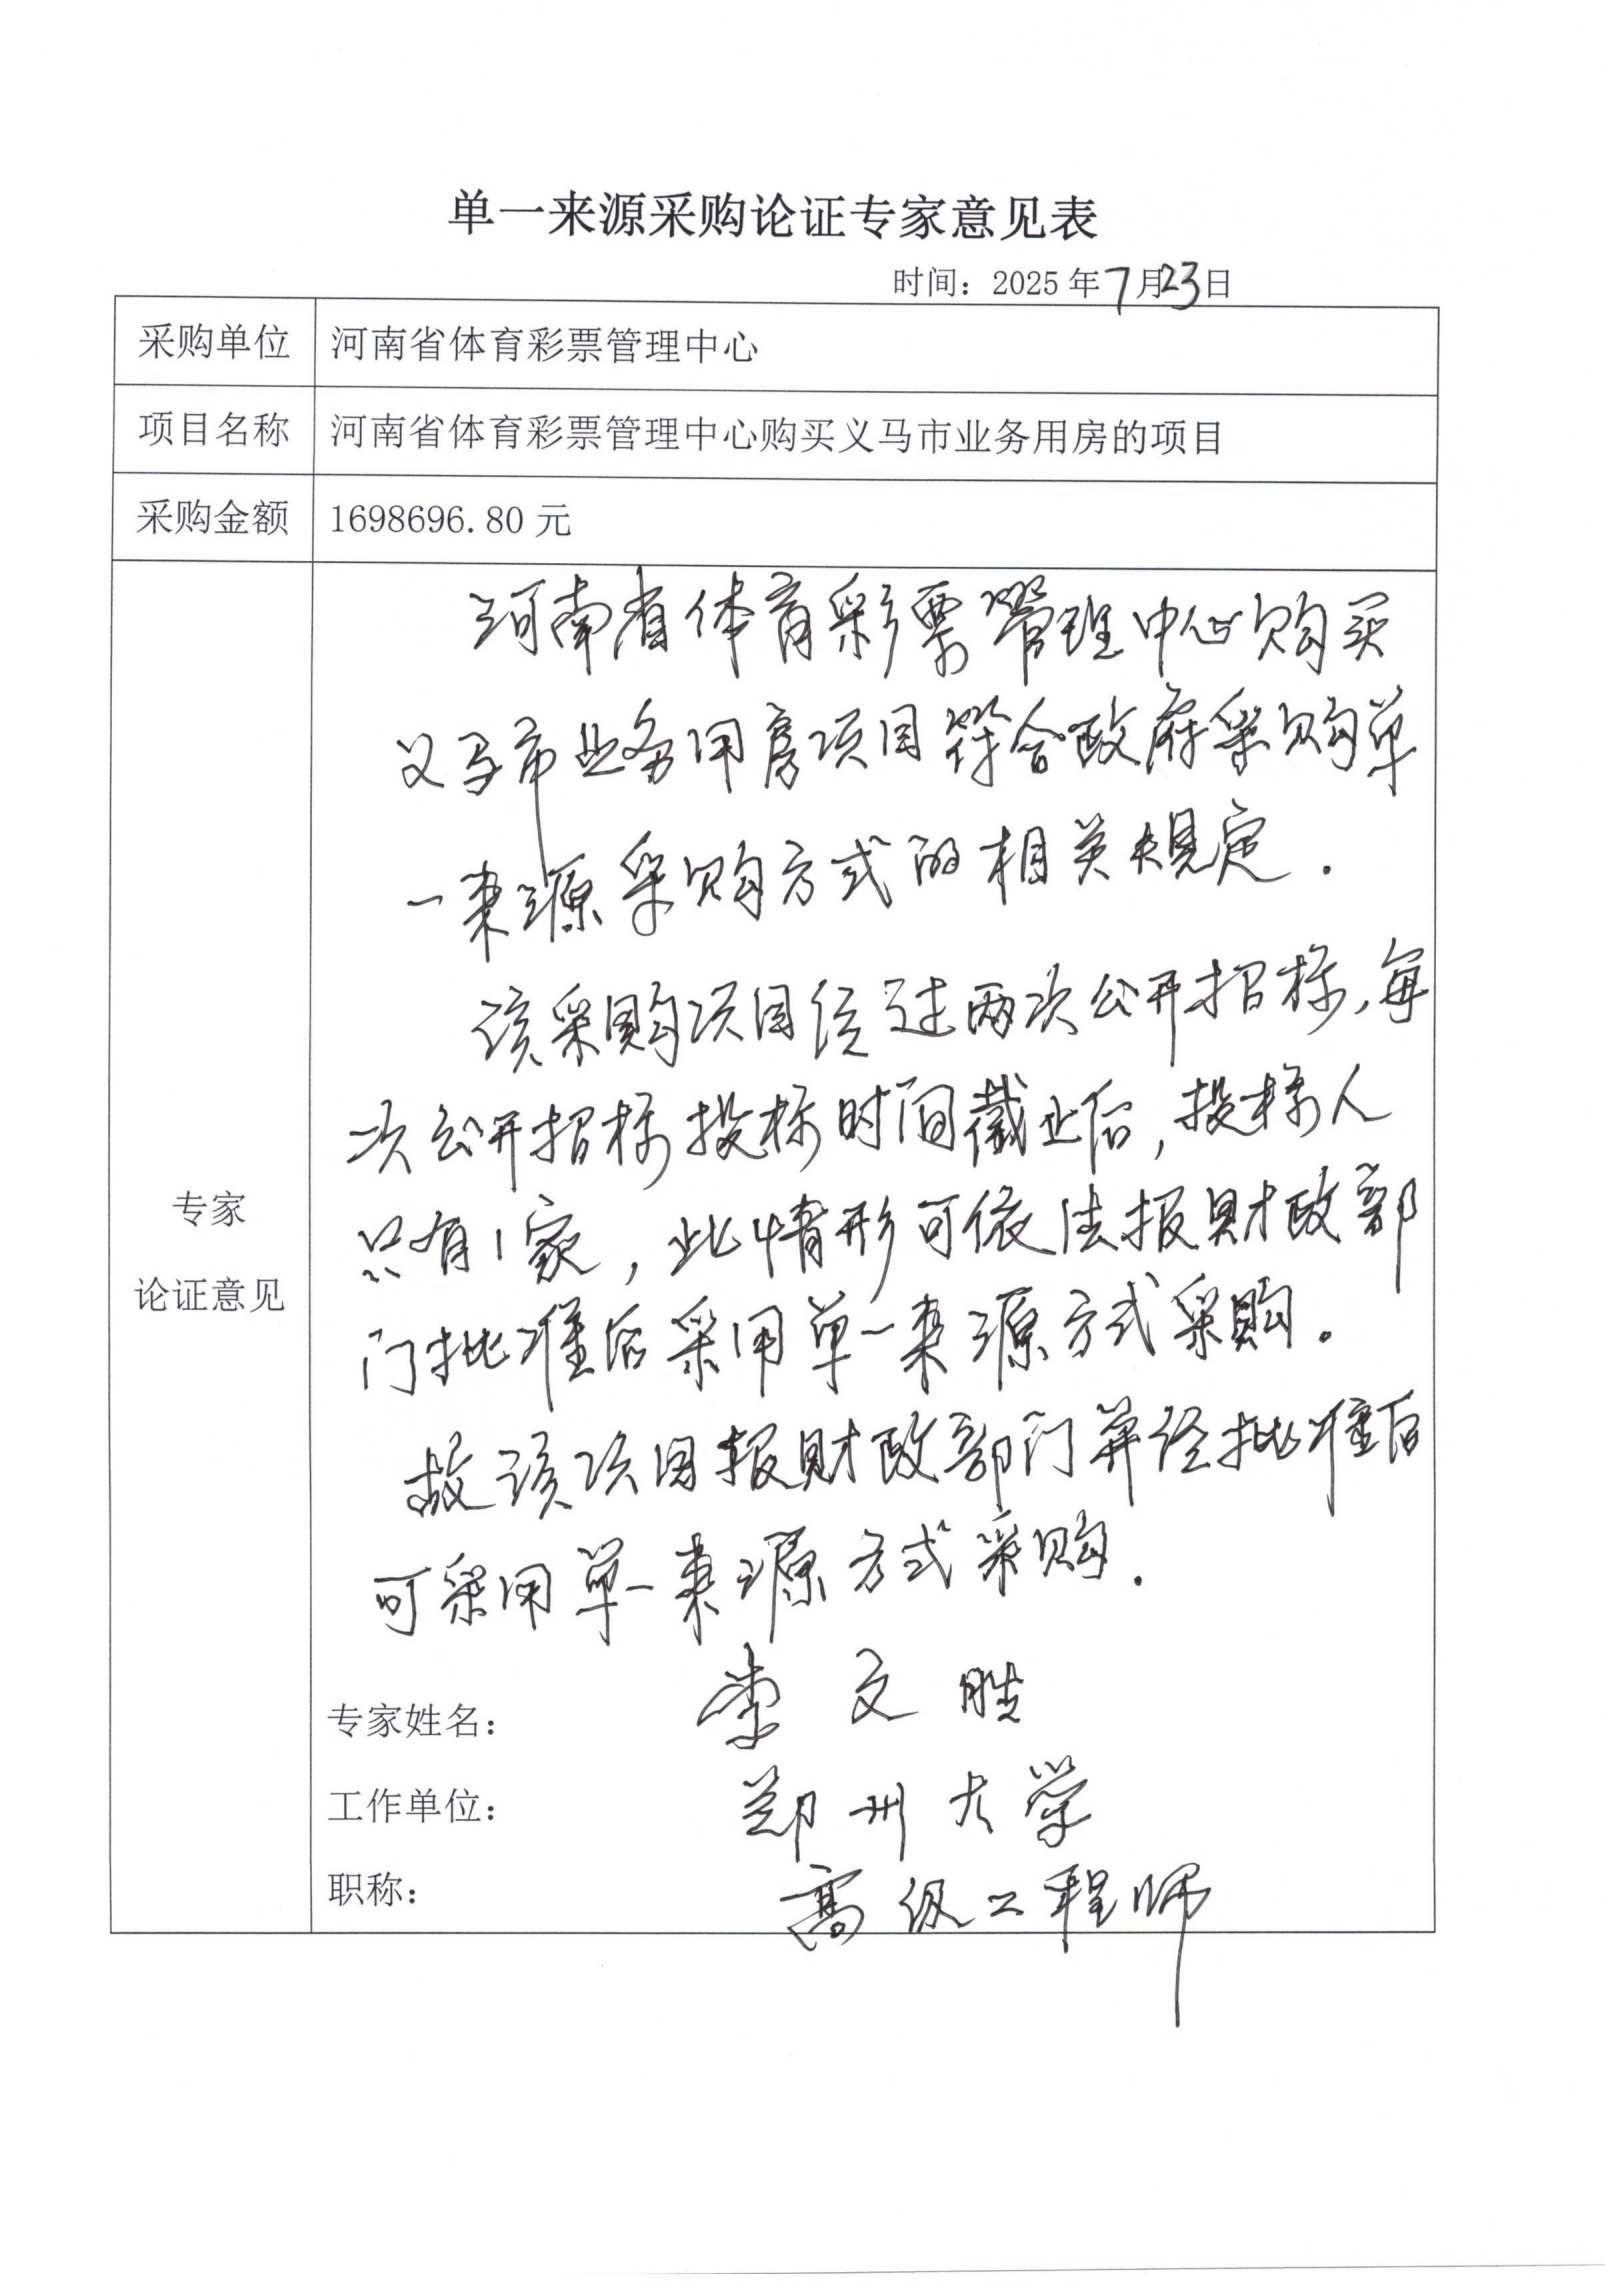 单一来源采购论证专家意见表
时间：2025年7月23日
采购单位 河南省体育彩票管理中心
项目名称 河南省体育彩票管理中心购买义马市业务用房的项目
采购金额 1698696.80元
专家
论证意见
河南省体育彩票管理中心购买
义马市业务用房项目符合政府采购单
一来源采购方式的相关规定.
该采购项目经过两次公开招标,每
次公开招标投标时间截止后,投标人
只有1家,此情形可依法报财政部
门批准后采用单一来源方式采购。
故该项目报财政部门并经批准后
可采用单一来源方式采购.
专家姓名：李文胜
工作单位：郑州大学
职称：高级工程师